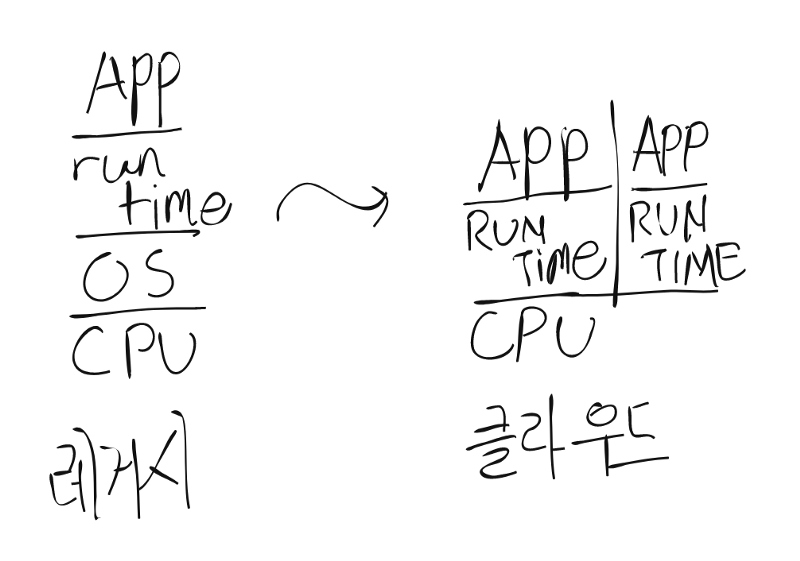 App
run
time
OS
CPU
레거시
App
RUN
Time
APP
RUN
TIME
CPU
클라우드